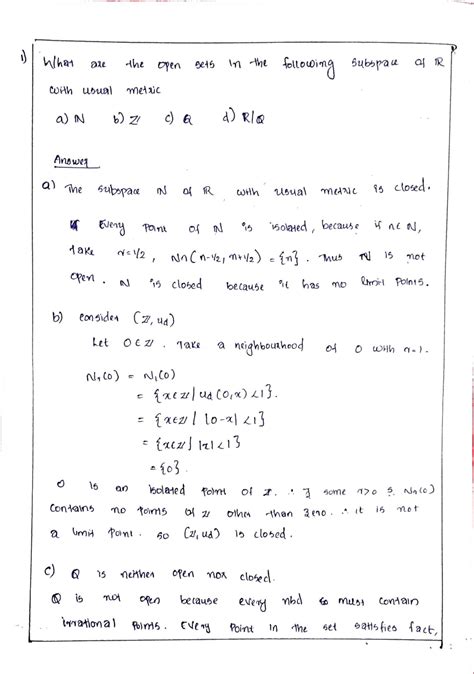 1) What are the open sets in the following subspace of R
with usual metric
a) N b) Z c) Q d) R\Q
Answer
a) The subspace N of R with usual metric is closed.
Every point of N is isolated, because if n∈N,
take r=1/2, N∩(n-1/2, n+1/2) = {n}. Thus N is not
open. N is closed because it has no limit points.
b) consider (Z, ud)
Let 0∈Z. Take a neighbourhood of 0 with r=1.
Nr(0) = N1(0)
= {x∈Z | ud(0,x)<1}.
= {x∈Z | |0-x|<1}
= {x∈Z | |x|<1}
= {0}.
0 is an isolated point of Z. ∴ ∃ some r>0 s. Nr(0)
contains no points of Z other than zero. ∴ it is not
a limit point. so (Z, ud) is closed.
c) Q is neither open nor closed.
Q is not open because every nbd must contain
irrational points. Every point in the set satisfies fact,